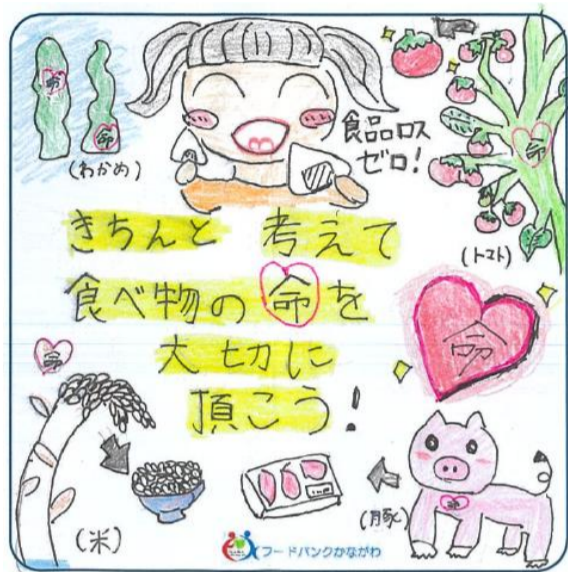 命
命
(わかめ)
食品ロス
ゼロ!
命
(トマト)
きちんと 考えて
食べ物の 命 を
大切に
頂こう!
命
命
(米)
命
(豚)
フードバンクかながわ